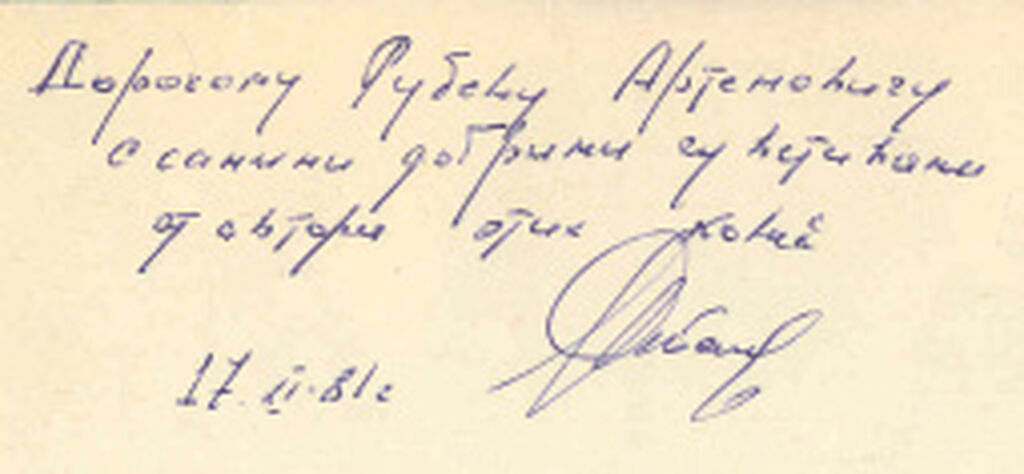 Дорогому Рубену Артемовичу
с самыми добрыми чувствами
от автора этих
17.II.81г